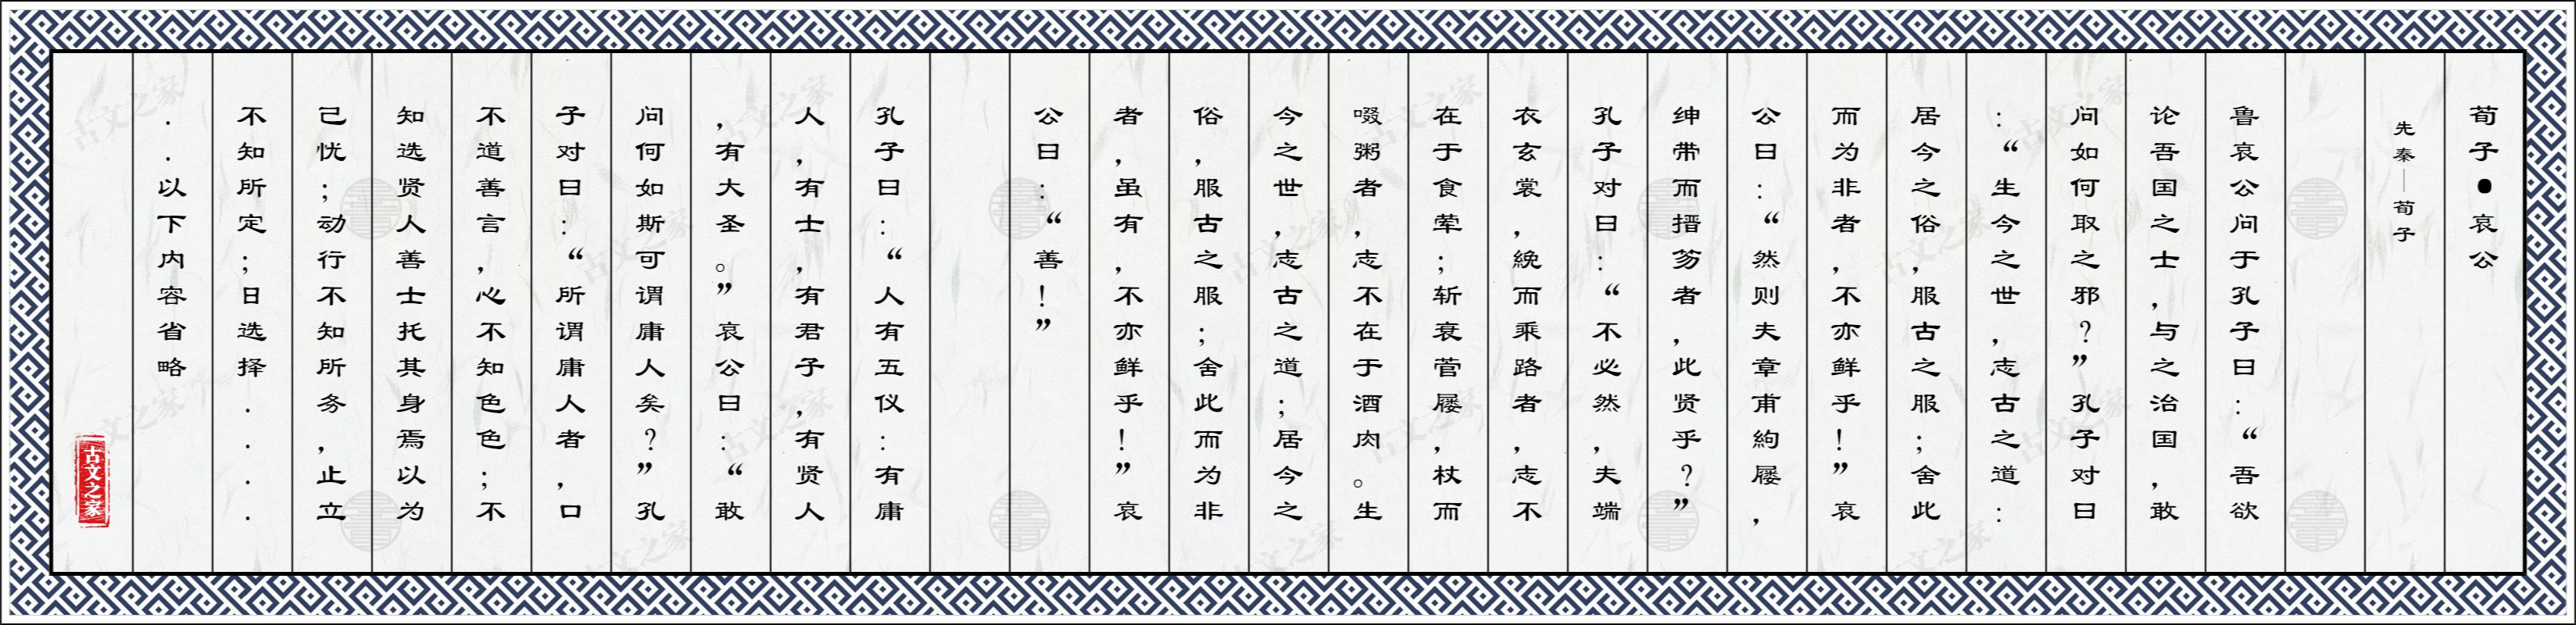 荀子●哀公
先秦—荀子
鲁哀公问于孔子曰：“吾欲
论吾国之士，与之治国，敢
问如何取之邪？”孔子对曰
：“生今之世，志古之道：
居今之俗，服古之服；舍此
而为非者，不亦鲜乎！”哀
公曰：“然则夫章甫絇屦，
绅带而搢笏者，此贤乎？”
孔子对曰：“不必然，夫端
衣玄裳，絻而乘路者，志不
在于食荤；斩衰菅屦，杖而
啜粥者，志不在于酒肉。生
今之世，志古之道；居今之
俗，服古之服；舍此而为非
者，虽有，不亦鲜乎！”哀
公曰：“善！”
孔子曰：“人有五仪：有庸
人，有士，有君子，有贤人
，有大圣。”哀公曰：“敢
问何如斯可谓庸人矣？”孔
子对曰：“所谓庸人者，口
不道善言，心不知色色；不
知选贤人善士托其身焉以为
己忧；动行不知所务，止立
不知所定；日选择....
..以下内容省略
古文之家